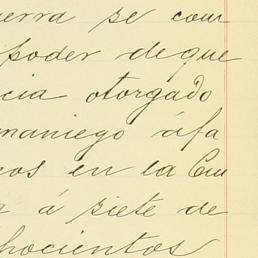 erra se com
poder de que
cia otorgado
maniego á fa
nos en la Ciu
á siete de
hocientos